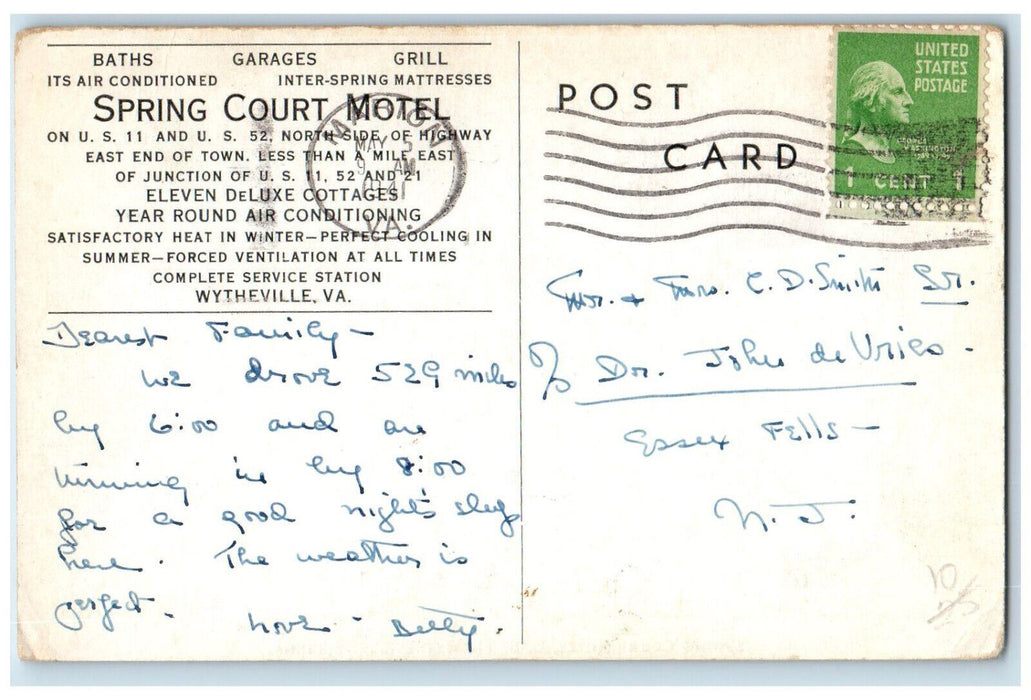 BATHS GARAGES GRILL
ITS AIR CONDITIONED INTER-SPRING MATTRESSES
SPRING COURT MOTEL
ON U. S. 11 AND U. S. 52, NORTH SIDE OF HIGHWAY
EAST END OF TOWN. LESS THAN A MILE EAST
OF JUNCTION OF U. S. 11, 52 AND 21
ELEVEN DELUXE COTTAGES
YEAR ROUND AIR CONDITIONING
SATISFACTORY HEAT IN WINTER—PERFECT COOLING IN
SUMMER—FORCED VENTILATION AT ALL TIMES
COMPLETE SERVICE STATION
WYTHEVILLE, VA.
MAY 5
AM
VA.
Dearest Family—
We drove 529 miles
by 6:00 and are
turning in by 8:00
for a good night's sleep
here. The weather is
perfect.
Love - Betty.
POST
CARD
UNITED
STATES
POSTAGE
1 CENT 1
Mr. + Mrs. C. D. Smith Sr.
% Dr. John deVries -
Essex Fells —
N. J.